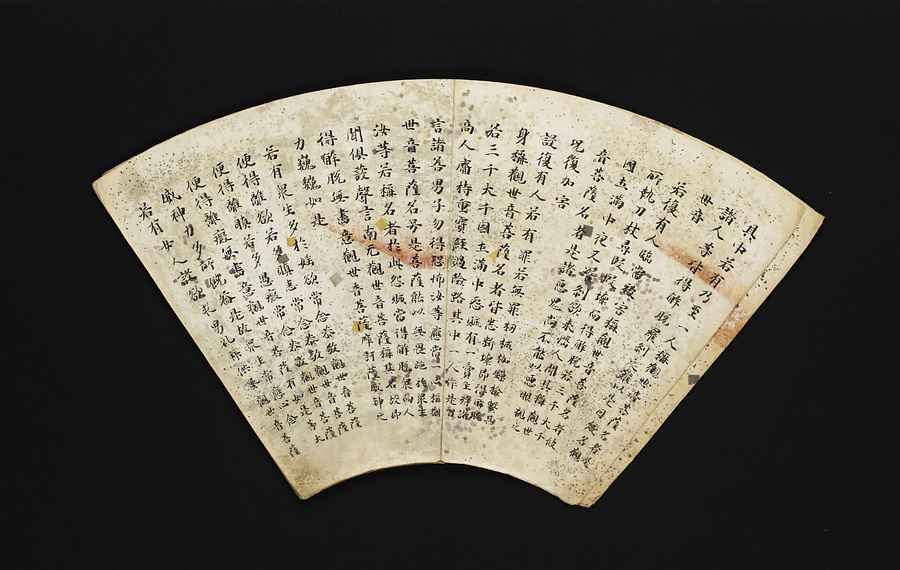 其中若有乃至一人稱觀世音菩薩名者是
諸人等皆得解脫羅剎之難以是因緣名觀
世音
若復有人臨當被害稱觀世音菩薩名者彼
所執刀杖尋段段壞而得解脫若三千大千
國土滿中夜叉羅剎欲來惱人聞其稱觀世
音菩薩名者是諸惡鬼尚不能以惡眼視之
況復加害
設復有人若有罪若無罪杻械枷鎖檢繫其
身稱觀世音菩薩名者皆悉斷壞即得解脫
若三千大千國土滿中怨賊有一商主將諸
商人齎持重寶經過險路其中一人作是唱
言諸善男子勿得恐怖汝等應當一心稱觀
世音菩薩名号是菩薩能以無畏施於眾生
汝等若稱名者於此怨賊當得解脫眾商人
聞俱發聲言南无觀世音菩薩稱其名故即
得解脫無盡意觀世音菩薩摩訶薩威神之
力巍巍如是
若有眾生多於婬欲常念恭敬觀世音菩薩
便得離欲若多瞋恚常念恭敬觀世音菩薩
便得離瞋若多愚癡常念恭敬觀世音菩薩
便得離癡無盡意觀世音菩薩有如是等大
威神力多所饒益是故眾生常應心念
若有女人設欲求男礼拜供養觀世音菩薩